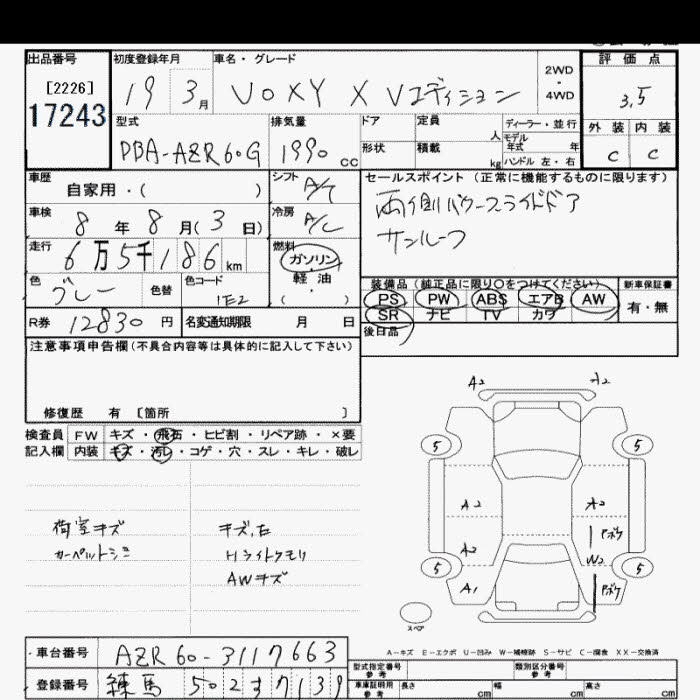 出品番号 初度登録年月 車名・グレード 2WD・4WD 評価点
[2226]
17243
19 3月 VOXY X Vエディション 3.5
型式 排気量 ドア 定員 人 ディーラー・並行 外装 内装
モデル年式 年
DBA-AZR60G 1990cc 形状 積載 kg ハンドル 左・右 C C
車歴 自家用・( ) シフト A/T セールスポイント(正常に機能するものに限ります)
車検 8年8月(3日) 冷房 A/C 両側パワースライドドア
サンルーフ
走行 6万5千186km 燃料 ガソリン
軽油
・
( )
色 グレー 色替 色コード 1E2 装備品(純正品に限り○をつけてください) 新車保証書
PS PW ABS エアB AW 有・無
R券 12830円 名変通知期限 月 日 SR ナビ TV カワ
後日品
注意事項申告欄(不具合内容等は具体的に記入して下さい)
修復歴 有 [箇所 ]
検査員 FW キズ・飛石・ヒビ割・リペア跡・×要
記入欄 内装 キズ・汚レ・コゲ・穴・スレ・キレ・破レ
荷室キズ
カーペットシミ
キズ,凹
Hライトクモリ
AWキズ
A2 A2
5 5
A2 A2
Pボケ
A2 W2
5 5
A1 Pボケ
スペア
A-キズ E-エクボ U-凹み W-補修跡 S-サビ C-腐食 XX-交換済
車台番号 AZR60-3117663
型式指定番号 参考 類別区分番号 参考
登録番号 練馬 502 す 7139
車庫証明用 参考 長さ cm 幅 cm 高さ cm